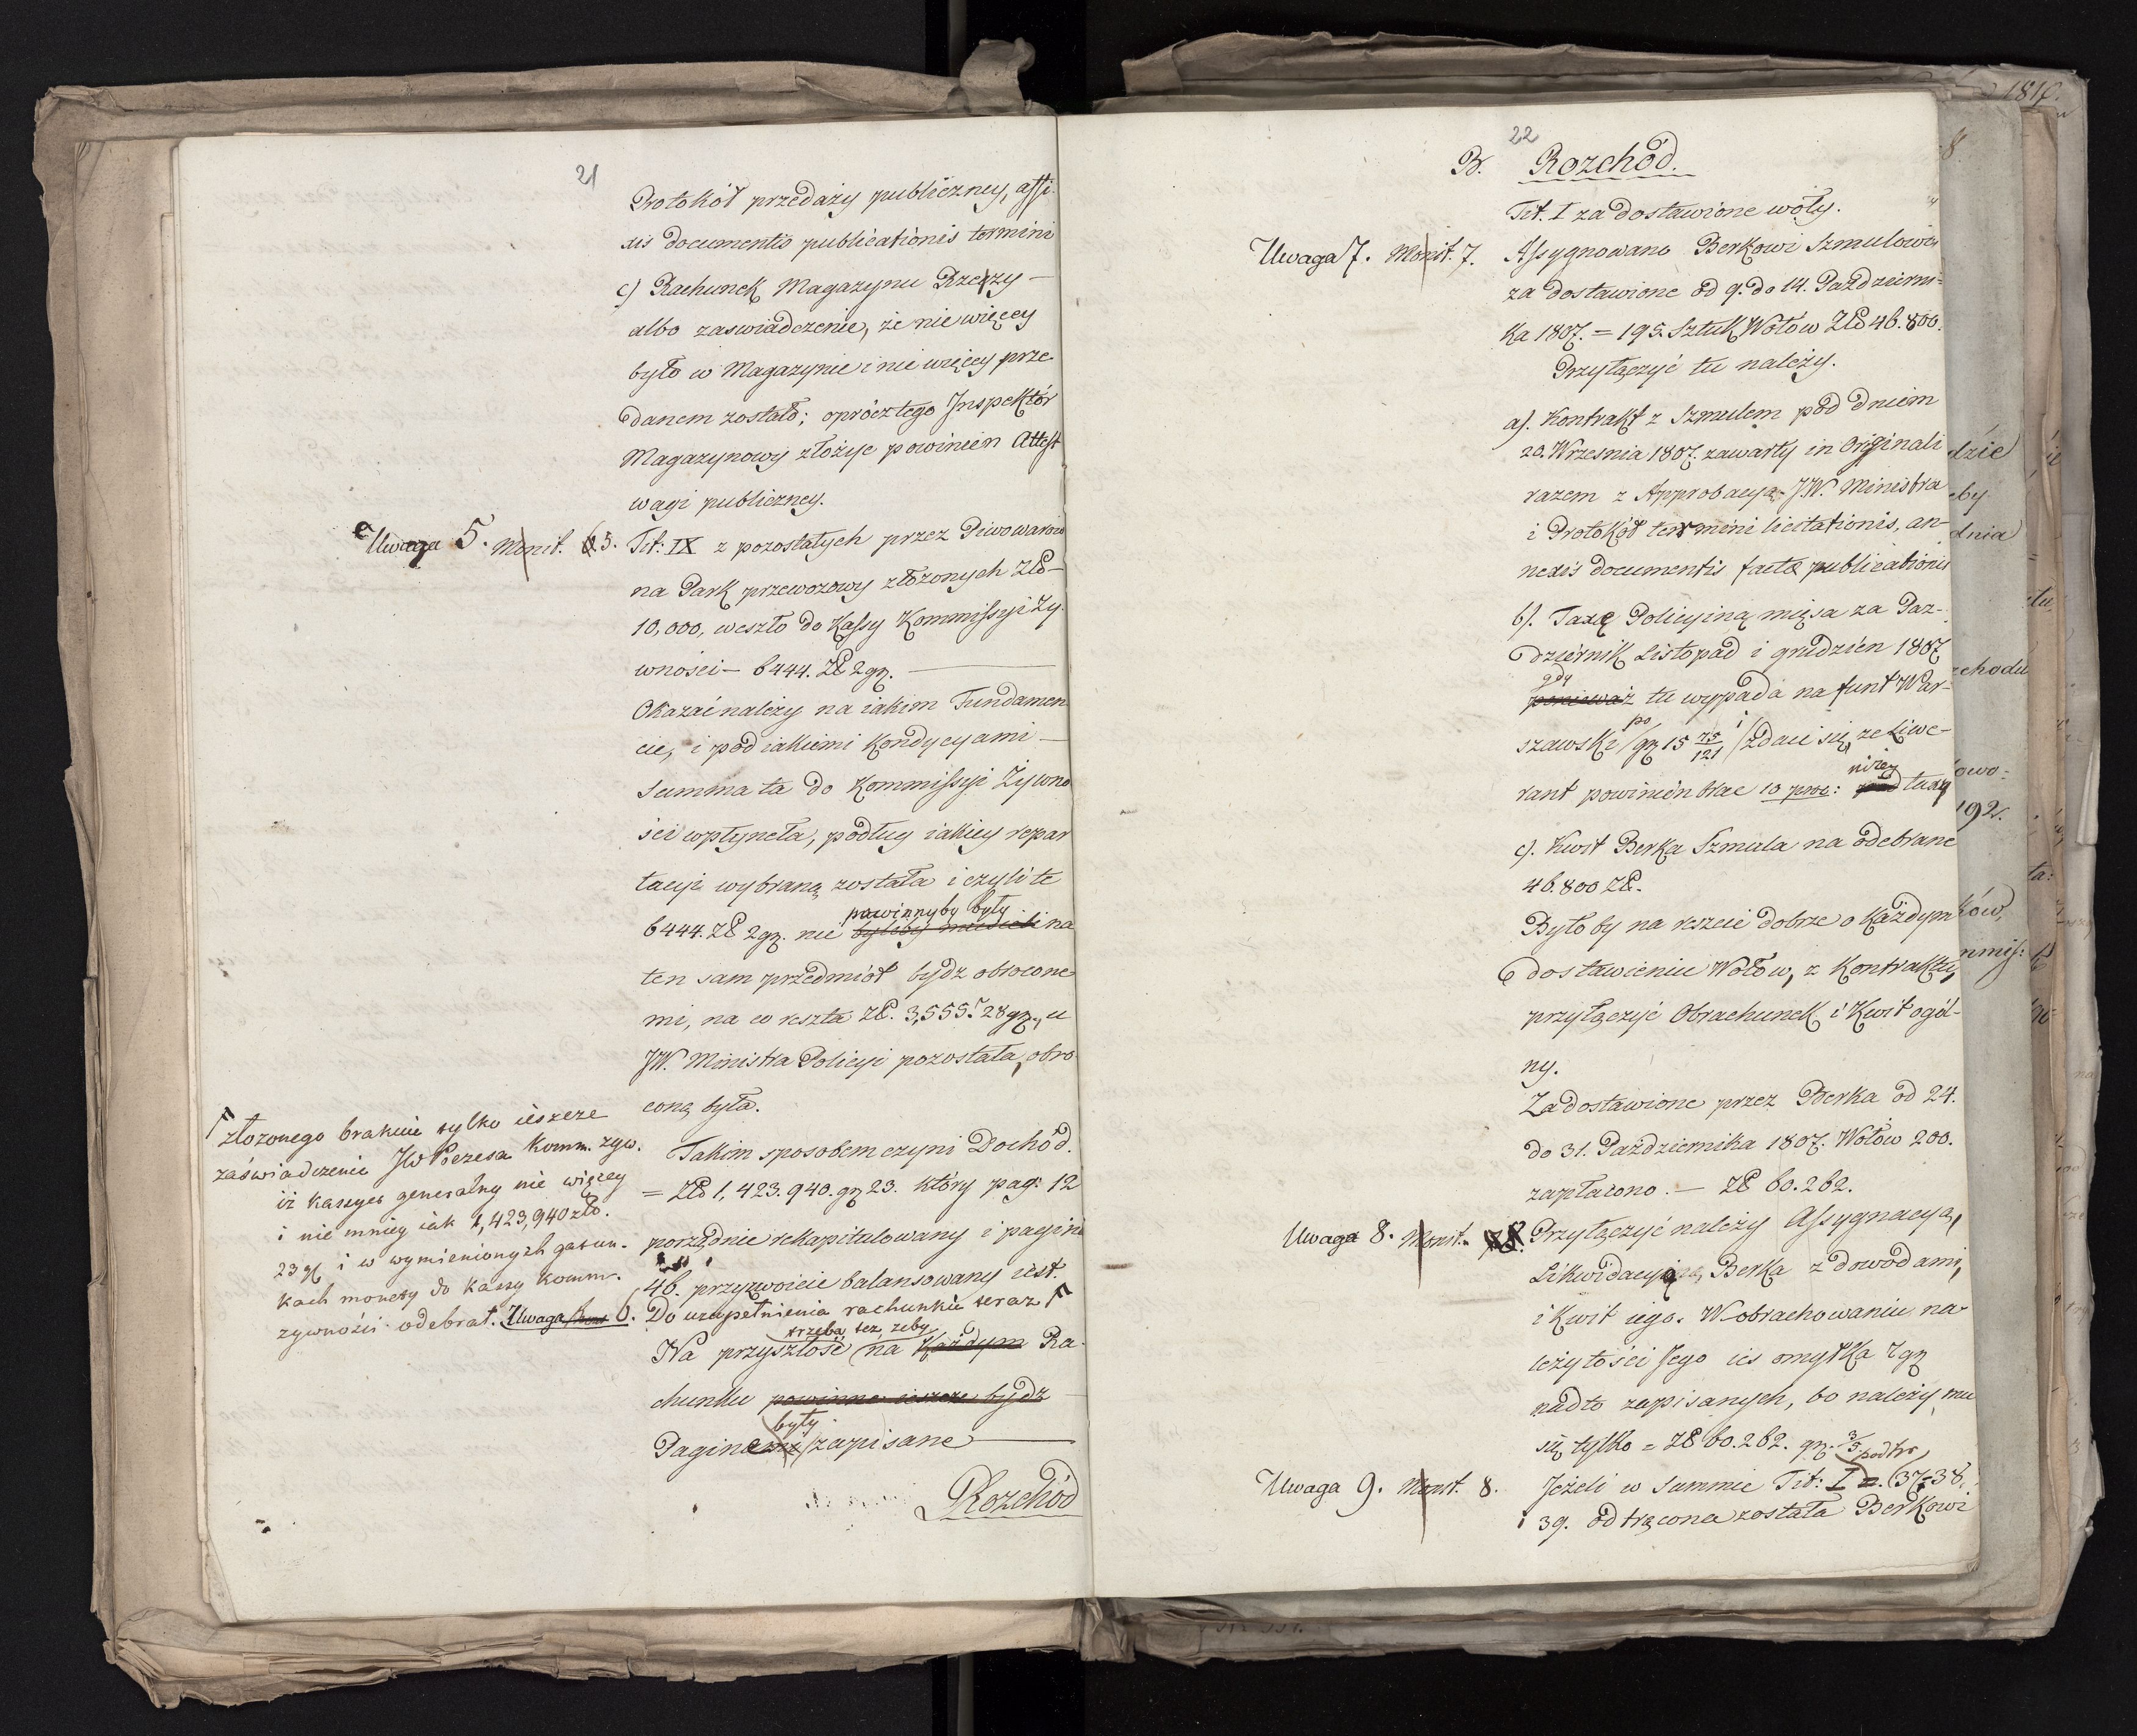 21
Protokół przedaży publiczney, affi-
xis documentis publicationis termini
c) Rachunek Magazynu Rzeczy —
albo zaswiadczenie, że nie więcey
było w Magazynie i nie więcey prze
danem zostało; oprócz tego Inspektór
Magazynowy złożyc powinien Attest
wagi publiczney.
Uwaga 5. Monit. 5. Tit: IX z pozostałych przez Piwowarów
na Park przewozowy złożonych Złł—
10,000, weszło do Kassy Kommissyi Ży-
wnosci — 6444. Zł 2 gr.
Okazać należy na iakim Fundamen
cie, i pod iakiemi Kondycyami —
summa ta do Kommissyi Żywno
sci wpłyneła, podług iakiey repar
tacyi wybraną została i czyli te
6444. Zł 2 gr. nie powinnyby były byliby musieli na
ten sam przedmiót bydz obrocone
mi, na co reszta Zł. 3,555. 28 gr., u
JW. Ministra Policyi pozostała, obro
coną była.
Takim sposobem czyni Dochód.
= Złł 1,423.940. gr 23. który pag: 12
porządnie rekapitulowany i pagina
46. przyzwoicie balansowany iest.
Do uzupełnienia rachunku teraz
złożonego brakuie tylko ieszcze
zaświadczenie JW Prezesa Komm. żyw.
iż kassyer generalny nie więcey
i nie mniey iak 1,423,940 złł.
23 gr i w wymienionych gatun-
kach monety do kassy komm.
żywności odebrał. Uwaga 6.
Na przyszłość trzeba też, żeby na każdym Ra-
chunku powinne ieszcze bydz
Paginy były zapisane
Rozchód
22
B. Rozchód.
Tit. I za dostawione woły.
Uwaga 7. Monit. 7. Assygnowano Berkowi Szmulowi
za dostawione od 9. do 14. Październi=
ka 1807. = 195 Sztuk Wołow Złł 46.800.
Przyłączyć tu należy.
a). Kontrakt z Szmulem pod dniem
20. Wrzesnia 1807. zawarty in Originali
razem z Approbacyą J.W. Ministra
i Protokół termini licitationis, an-
nexis documentis factæ publicationis
b). Taxę Policyiną mięsa za Paz-
dziernik Listopad i grudzień 1807
gdy ponieważ tu wypada na funt War-
szawski / po gr 15 75/121 / zdaie się, że Liwe-
rant powinien brac 10 proc: niżey pod taxy
c). Kwit Berka Szmula na odebrane
46.800 Zł.
Było by na reszcie dobrze o każdym
dostawieniu Wołow, z Kontraktu,
przyłączyć Obrachunek i Kwit ogól-
ny.
Za dostawione przez Berka od 24.
do 31. Października 1807. Wołow 200.
zapłacono. — Zł 60.262.
Uwaga 8. Monit. Przyłączyć należy Assygnacyą,
Likwidacyą, Berka z dowodami,
i Kwit iego. W obrachowaniu na
leżytości Jego ies omyłka 7 gr
nadto zapisanych, bo należy mu
się tylko = Zł 60.262. gr. 3/5.
Uwaga 9. Monit. 8. Jeżeli w summie Tit: I podług 37. 38.
i 39. odtrącona została Berkowi